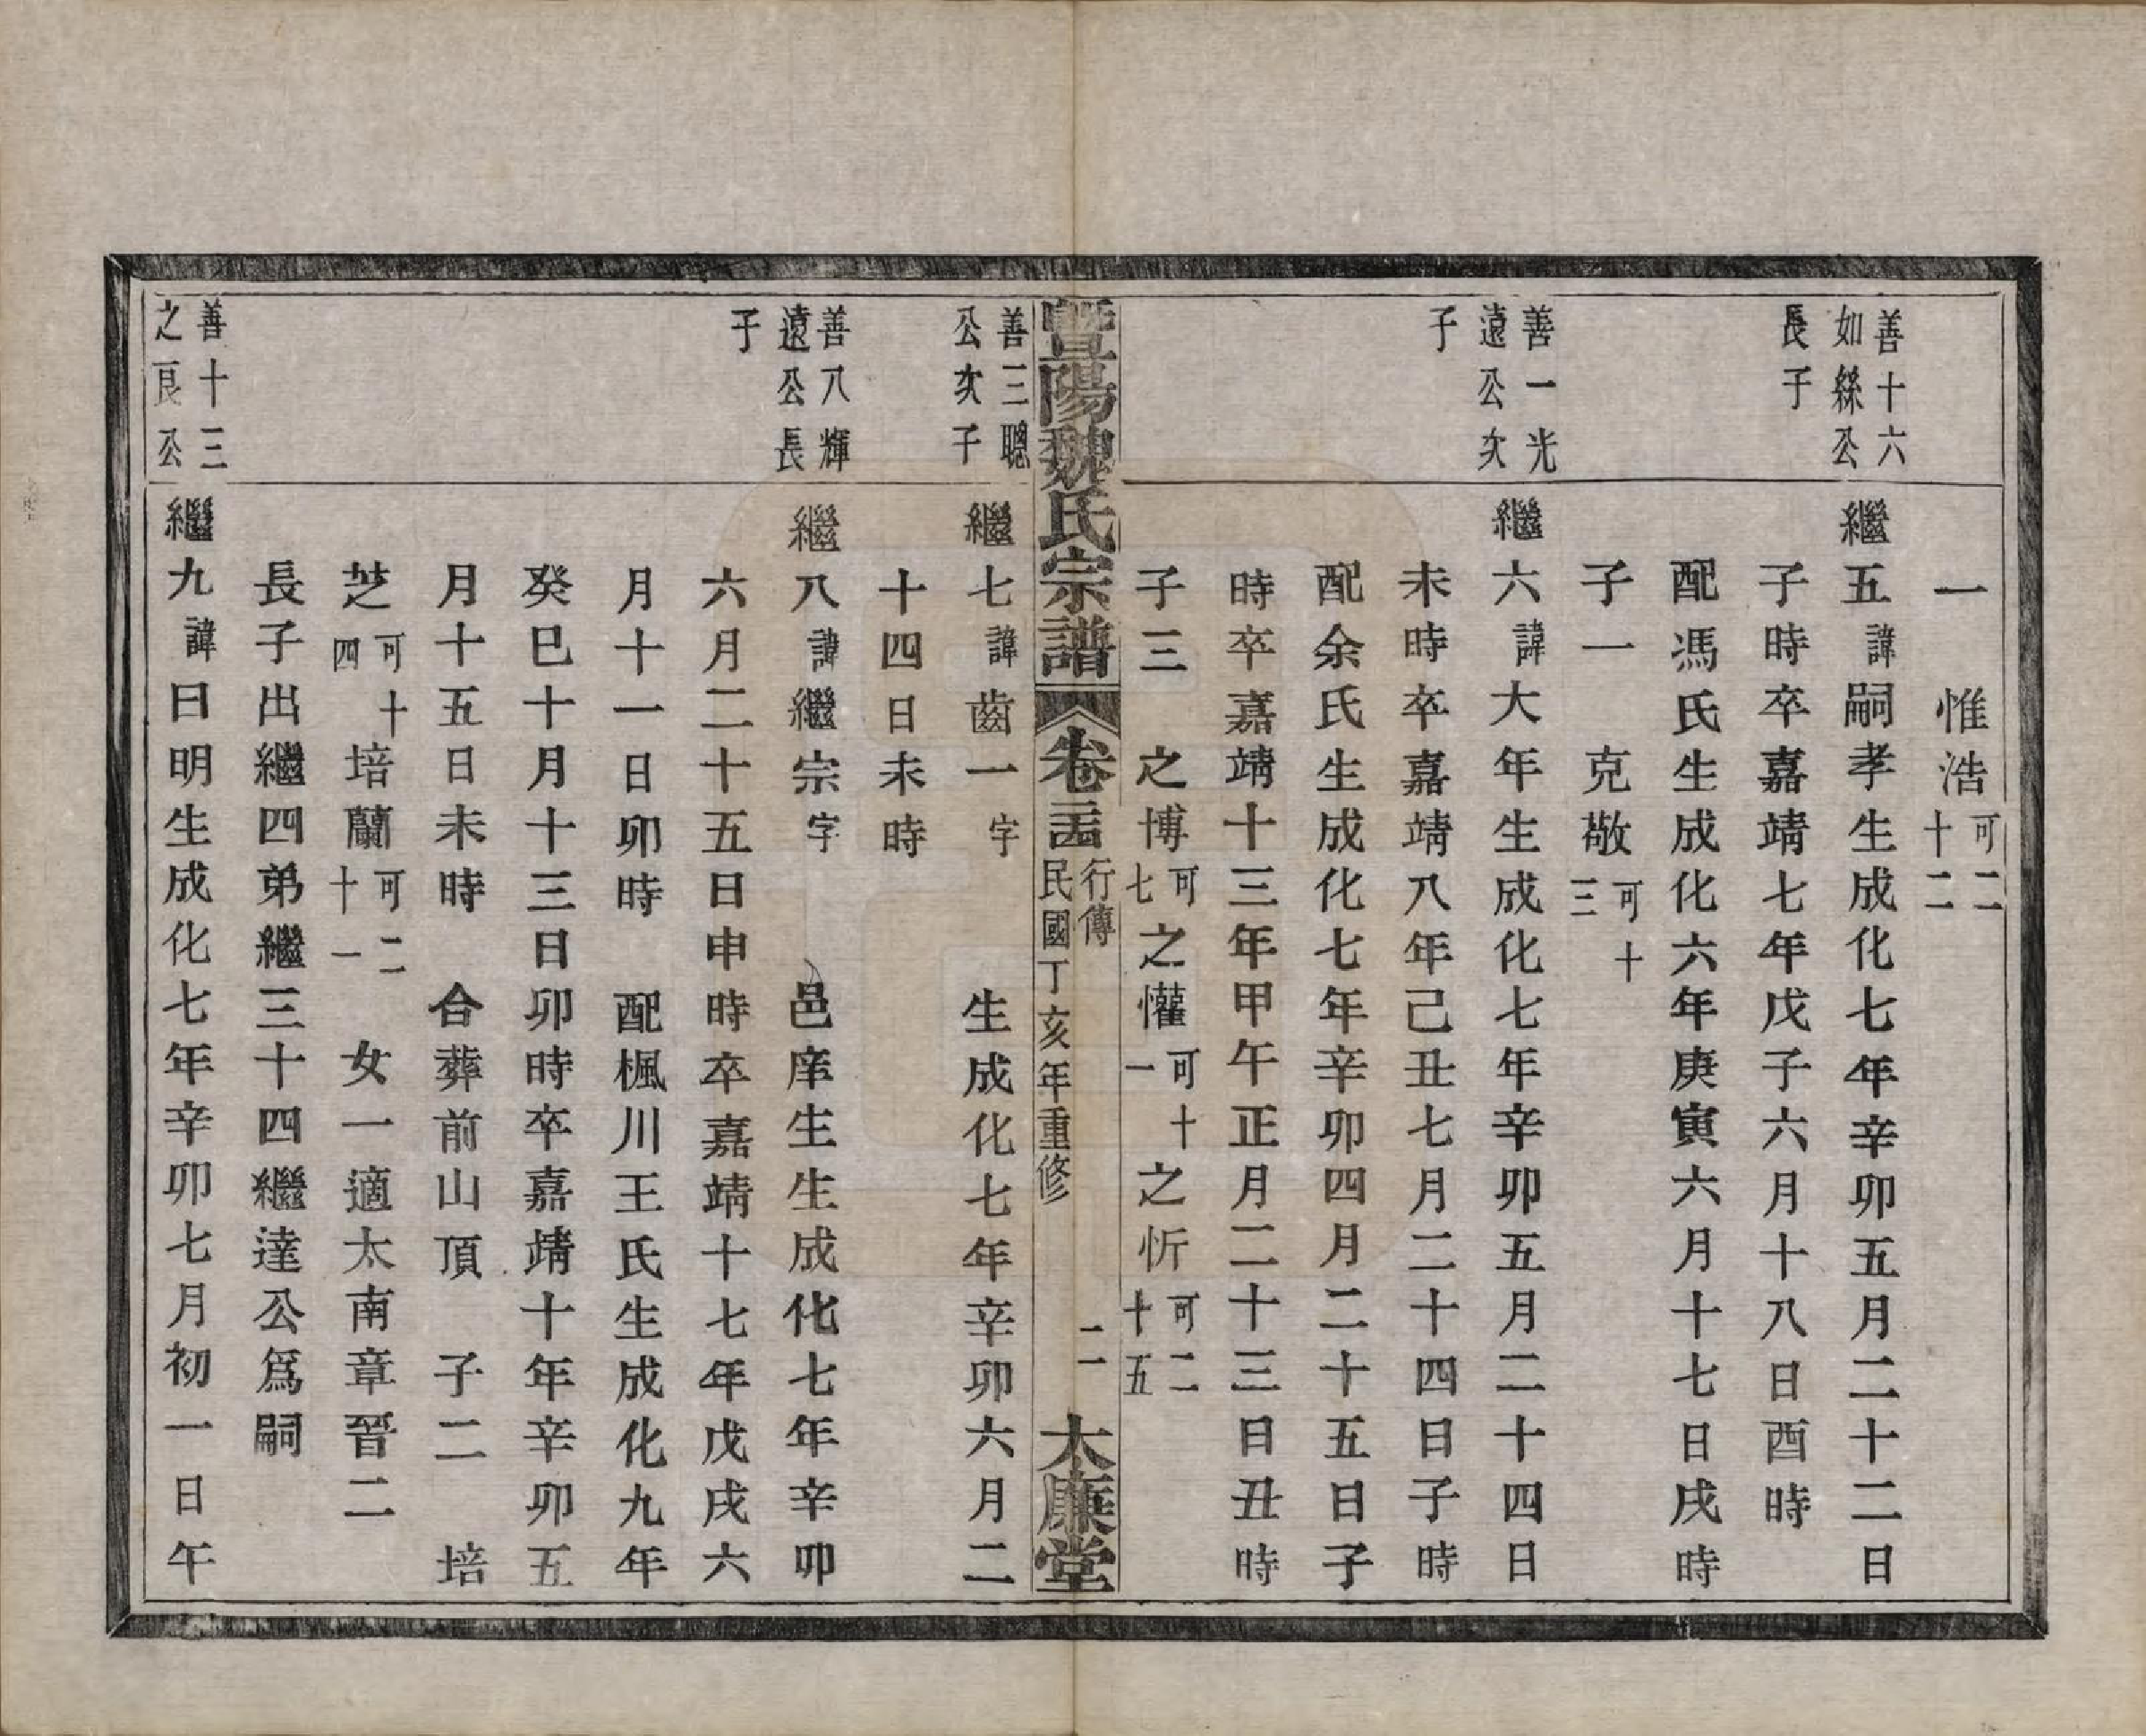 一　惟浩可二十二
善十六如緜公長子
繼五諱嗣孝生成化七年辛卯五月二十二日
子時卒嘉靖七年戊子六月十八日酉時
配馮氏生成化六年庚寅六月十七日戌時
子一　克敬可十三
善一光遠公次子
繼六諱大年生成化七年辛卯五月二十四日
未時卒嘉靖八年己丑七月二十四日子時
配余氏生成化七年辛卯四月二十五日子
時卒嘉靖十三年甲午正月二十三日丑時
子三　之博可七之懽可十一之忻可二十五
暨陽魏氏宗譜
卷二十四　行傳　民國丁亥年重修　二　大廉堂
善三聰公次子
繼七諱齒一字　生成化七年辛卯六月二
十四日未時
善八輝遠公長子
繼八諱繼宗字　邑庠生生成化七年辛卯
六月二十五日申時卒嘉靖十七年戊戌六
月十一日卯時　配楓川王氏生成化九年
癸巳十月十三日卯時卒嘉靖十年辛卯五
月十五日未時　合葬前山頂　子二　培
芝可十四　培蘭可二十一　女一適太南章晉二
長子出繼四弟繼三十四繼達公爲嗣
善十三之良公
繼九諱曰明生成化七年辛卯七月初一日午